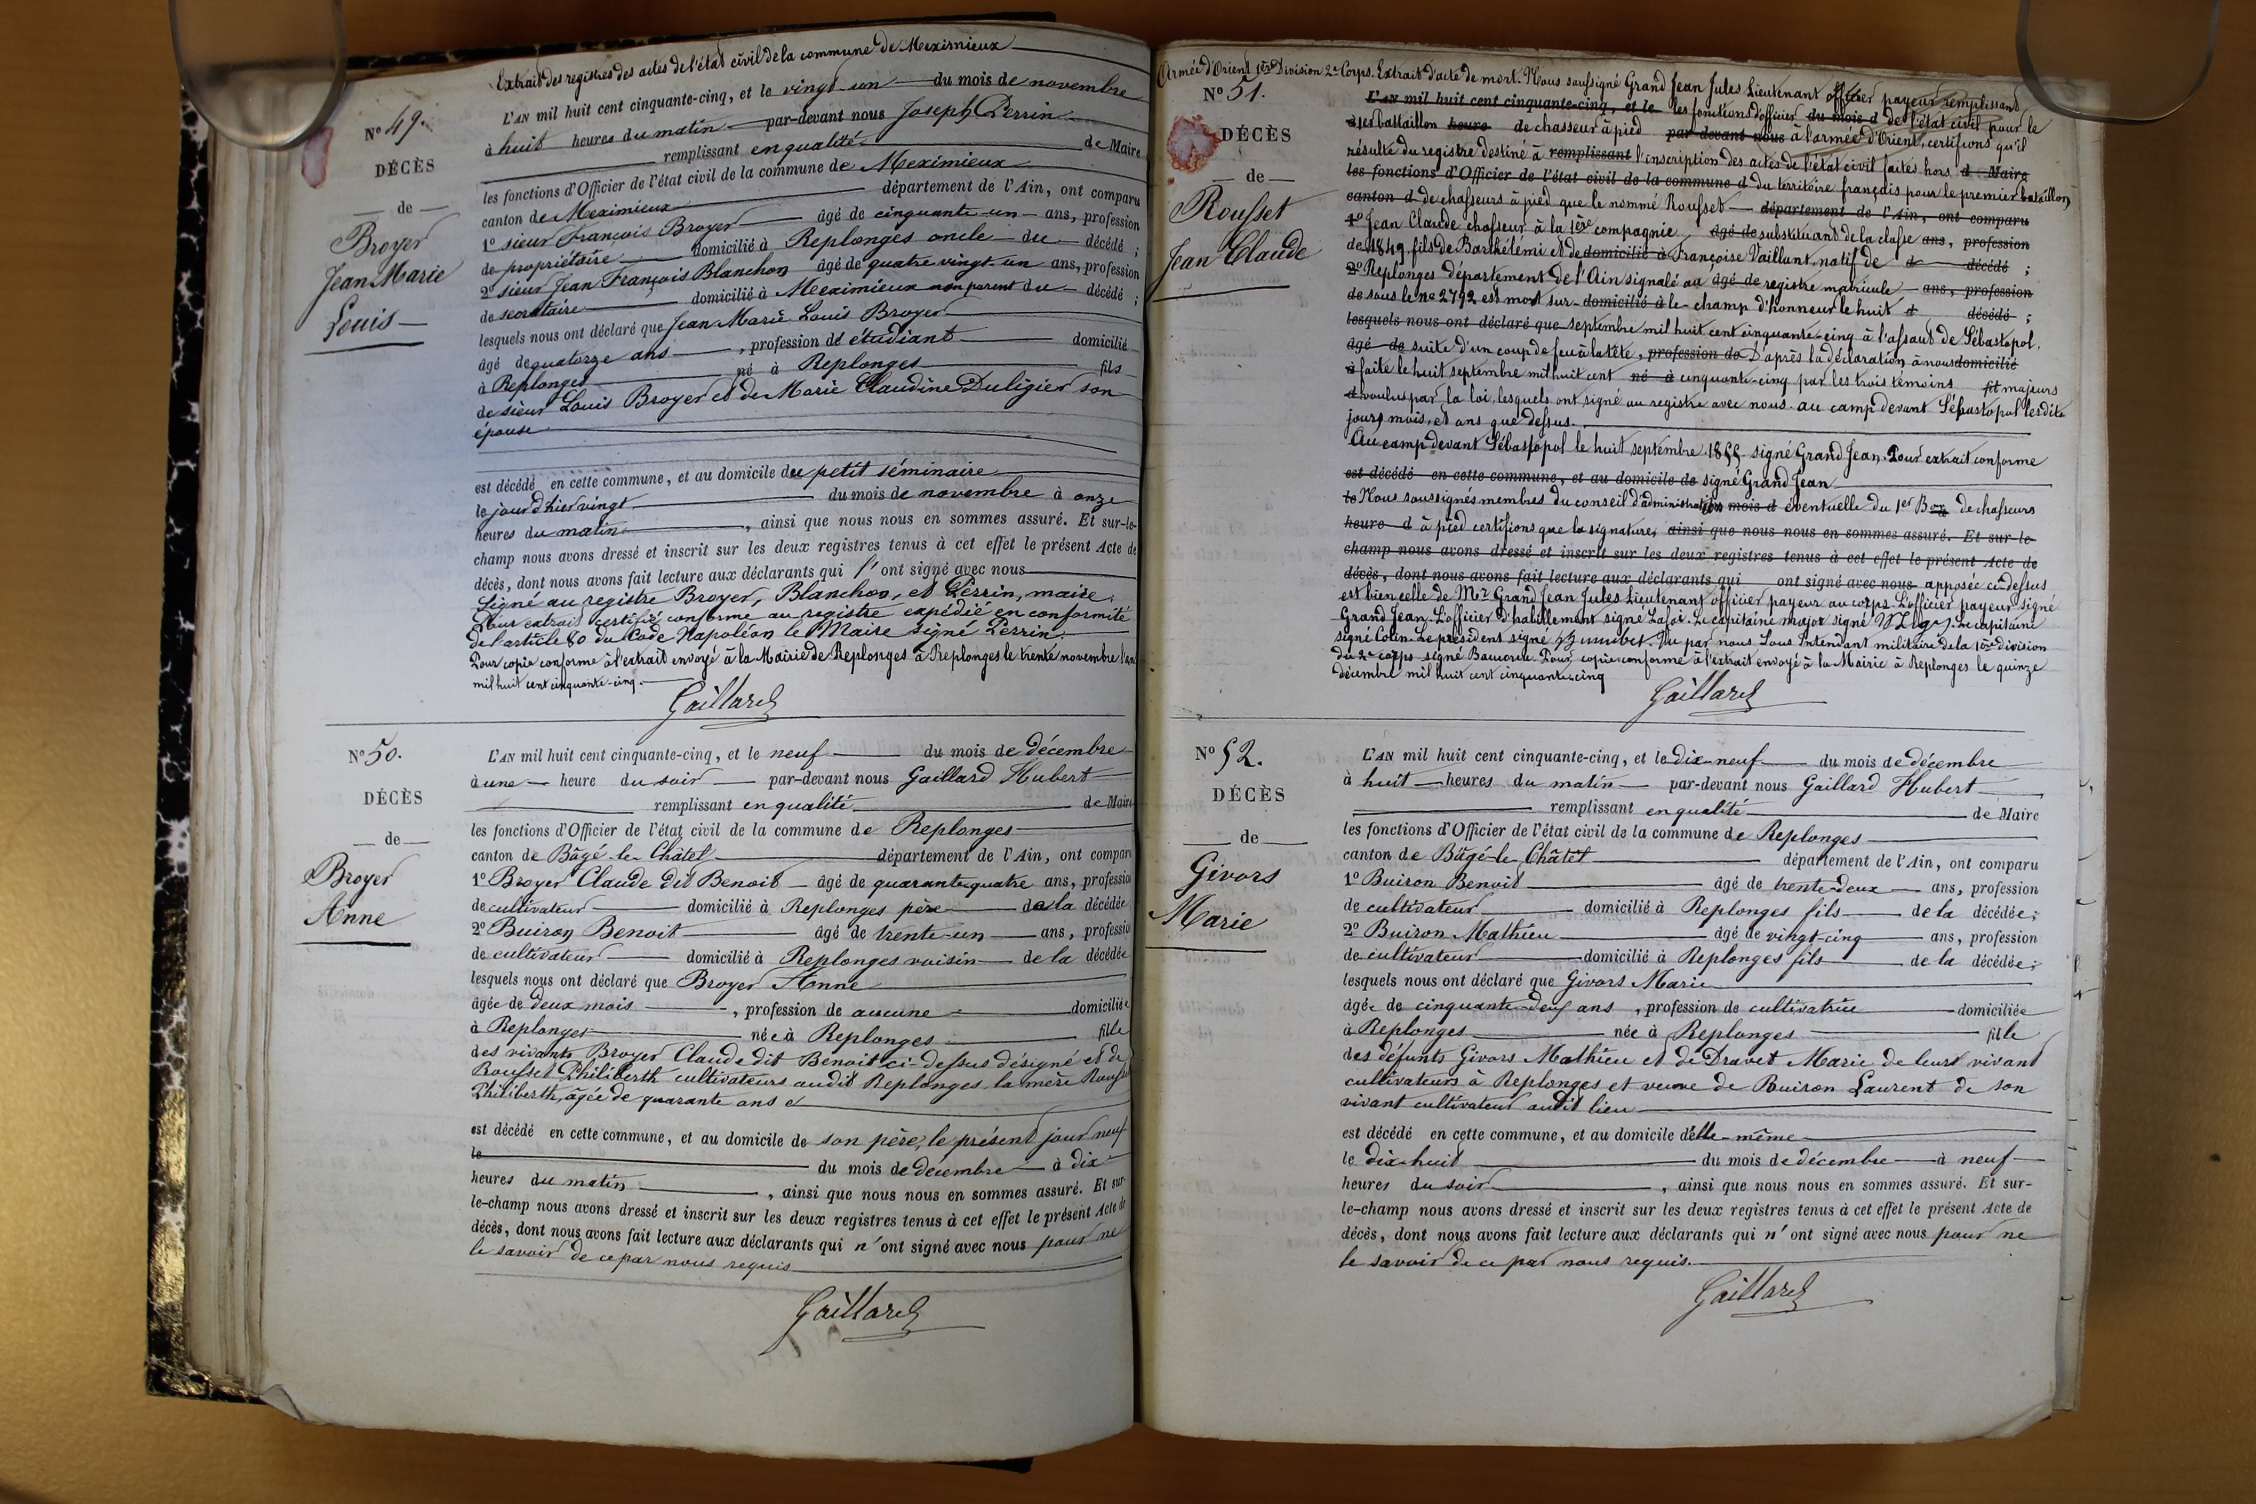 Extrait des registres des actes de l'état civil de la commune de Meximieux
N° 49.
DÉCÈS
de
Broyer
Jean Marie
Louis
L'AN mil huit cent cinquante-cinq, et le vingt un du mois de novembre
à huit heures du matin par-devant nous Joseph Perrin
remplissant en qualité de Maire
les fonctions d'Officier de l'état civil de la commune de Meximieux
canton de Meximieux département de l'Ain, ont comparu
1° sieur François Broyer âgé de cinquante-un ans, profession
de propriétaire domicilié à Replonges oncle du décédé ;
2° sieur Jean François Blanchon âgé de quatre vingt-un ans, profession
de secrétaire domicilié à Meximieux non parent du décédé ;
lesquels nous ont déclaré que Jean Marie Louis Broyer
âgé de quatorze ans, profession d'étudiant domicilié
à Replonges né à Replonges fils
de sieur Louis Broyer et de Marie Claudine Duligier son
épouse
est décédé en cette commune, et au domicile du petit séminaire
le jour d'hier vingt du mois de novembre à onze
heures du matin, ainsi que nous nous en sommes assuré. Et sur-le-
champ nous avons dressé et inscrit sur les deux registres tenus à cet effet le présent Acte de
décès, dont nous avons fait lecture aux déclarants qui l'ont signé avec nous
Signé au registre Broyer, Blanchon, et Perrin, maire.
Pour extrait certifié conforme au registre expédié en conformité
de l'article 80 du Code Napoléon le Maire signé Perrin.
Pour copie conforme à l'extrait envoyé à la Mairie de Replonges à Replonges le trente novembre l'an
mil huit cent cinquante-cinq.
Gaillard
N° 50.
DÉCÈS
de
Broyer
Anne
L'AN mil huit cent cinquante-cinq, et le neuf du mois de décembre
à une heure du soir par-devant nous Gaillard Hubert
remplissant en qualité de Maire
les fonctions d'Officier de l'état civil de la commune de Replonges
canton de Bâgé-le-Châtel département de l'Ain, ont comparu
1° Broyer Claude dit Benoit âgé de quarante quatre ans, profession
de cultivateur domicilié à Replonges père de la décédée
2° Buiron Benoit âgé de trente-un ans, profession
de cultivateur domicilié à Replonges voisin de la décédée
lesquels nous ont déclaré que Broyer Anne
âgée de deux mois, profession de aucune domiciliée
à Replonges née à Replonges fille
des vivants Broyer Claude dit Benoit ci-dessus désigné et de
Rousset Philiberth cultivateurs audit Replonges la mère Rousset
Philiberth, âgée de quarante ans et
est décédé en cette commune, et au domicile de son père, le présent jour neuf
le du mois de décembre à dix
heures du matin, ainsi que nous nous en sommes assuré. Et sur-
le-champ nous avons dressé et inscrit sur les deux registres tenus à cet effet le présent Acte de
décès, dont nous avons fait lecture aux déclarants qui n'ont signé avec nous pour ne
le savoir de ce par nous requis
Gaillard
Armée d'Orient 1ère Division 2e Corps. Extrait d'acte de mort. Nous soussigné Grand Jean Jules Lieutenant officier payeur remplissant
N° 51.
DÉCÈS
de
Rousset
Jean Claude
L'AN mil huit cent cinquante-cinq, et le les fonctions d'officier du mois d de l'état civil pour le
à 1er bataillon heure de chasseur à pied par devant nous à l'armée d'Orient, certifions qu'il
résulte du registre destiné à remplissant l'inscription des actes de l'état civil faites hors d Maire
les fonctions d'Officier de l'état civil de la commune d du territoire français pour le premier bataillon
canton d de chasseurs à pied que le nommé Rousset département de l'Ain, ont comparu
1° Jean Claude chasseur à la 1ère compagnie, âgé de substituant de la classe ans, profession
de 1849 fils de Barthélémi et de domicilié à Françoise Vaillant natif de d décédé ;
2° Replonges département de l'Ain signalé au âgé de registre matricule ans, profession
de sous le no 2792 est mort sur domicilié à le champ d'honneur le huit d décédé ;
lesquels nous ont déclaré que septembre mil huit cent cinquante-cinq à l'assaut de Sébastopol.
âgé de suite d'un coup de feu à la tête, profession de D'après la déclaration à nous domicilié
à faite le huit septembre mil huit cent né à cinquante-cinq par les trois témoins fil majeurs
d voulus par la loi, lesquels ont signé au registre avec nous. au camp devant Sébastopol les dits
jours mois et ans que dessus.
Au camp devant Sébastopol le huit septembre 1855 signé Grand Jean. Pour extrait conforme
est décédé en cette commune, et au domicile de signé Grand Jean
le Nous soussignés membres du conseil d'administration mois d éventuelle du 1er Bon de chasseurs
heure d à pied certifions que la signature, ainsi que nous nous en sommes assuré. Et sur-le-
champ nous avons dressé et inscrit sur les deux registres tenus à cet effet le présent Acte de
décès, dont nous avons fait lecture aux déclarants qui ont signé avec nous apposée ci-dessus
est bien celle de Mr Grand Jean Jules Lieutenant officier payeur au corps. L'officier payeur signé
Grand Jean. L'officier d'habillement signé Lafox. Le capitaine major signé Le capitaine
signé Colin. Le président signé Vu par nous Sous Intendant militaire de la 1ère division
du 2e corps signé Pour copie conforme à l'extrait envoyé à la Mairie à Replonges le quinze
décembre mil huit cent cinquante-cinq
Gaillard
N° 52.
DÉCÈS
de
Givors
Marie
L'AN mil huit cent cinquante-cinq, et le dix-neuf du mois de décembre
à huit heures du matin par-devant nous Gaillard Hubert
remplissant en qualité de Maire
les fonctions d'Officier de l'état civil de la commune de Replonges
canton de Bâgé-le-Châtel département de l'Ain, ont comparu
1° Buiron Benoit âgé de trente-deux ans, profession
de cultivateur domicilié à Replonges fils de la décédée ;
2° Buiron Mathieu âgé de vingt-cinq ans, profession
de cultivateur domicilié à Replonges fils de la décédée ;
lesquels nous ont déclaré que Givors Marie
âgée de cinquante-deux ans, profession de cultivatrice domiciliée
à Replonges née à Replonges fille
des défunts Givors Mathieu et de Dravet Marie de leurs vivant
cultivateurs à Replonges et veuve de Buiron Laurent de son
vivant cultivateur audit lieu
est décédé en cette commune, et au domicile d'elle-même
le dix-huit du mois de décembre à neuf
heures du soir, ainsi que nous nous en sommes assuré. Et sur-
le-champ nous avons dressé et inscrit sur les deux registres tenus à cet effet le présent Acte de
décès, dont nous avons fait lecture aux déclarants qui n'ont signé avec nous pour ne
le savoir de ce par nous requis.
Gaillard